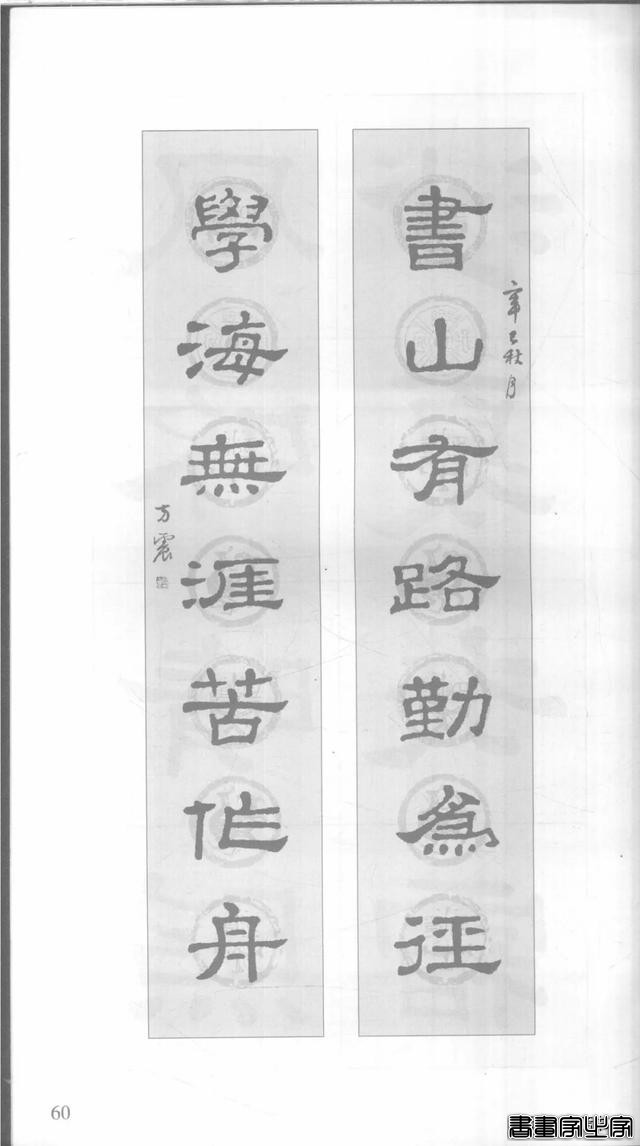 書山有路勤為徑
辛巳秋月
學海無涯苦作舟
方震
60
書畫家必字